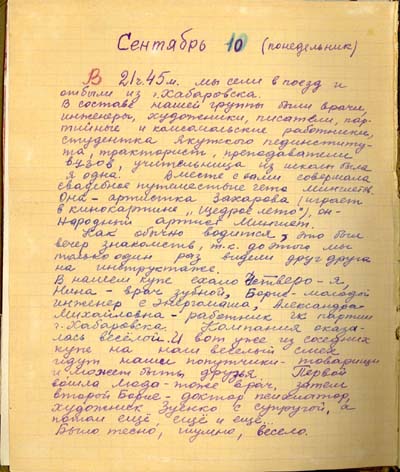 Сентябрь 10 (понедельник)
В 21ч.45м. мы сели в поезд и
отбыли из г.Хабаровска.
В составе нашей группы были врачи,
инженеры, художники, писатели, пар-
тийные и комсомольские работники,
студентка Якутского пединститу-
та, тракторист, преподаватели
вузов, учительница из школ была
я одна. Вместе с нами совершала
свадебное путешествие чета
Она - артистка Захарова (играет
в кинокартине "Щедрое лето"), он-
народный артист
Как обычно водится, это был
вечер знакомств, т.к. до этого мы
только один раз видели друг друга
на инструктаже.
В нашем купе ехало четверо - я,
Нина - врач зубной, Борис - молодой
инженер с Энергомаша, Александра
Михайловна - работник ГК партии
г. Хабаровска. Компания оказа-
лась весёлой. И вот уже из соседних
купе на наш весёлый смех
идут наши попутчики - товарищи
и может быть друзья. Первой
вошла Люда - тоже врач, затем
второй Борис - доктор психиатор,
художник Зуенко с супругой, а
потом ещё, ещё и ещё.
Было тесно, шумно, весело.